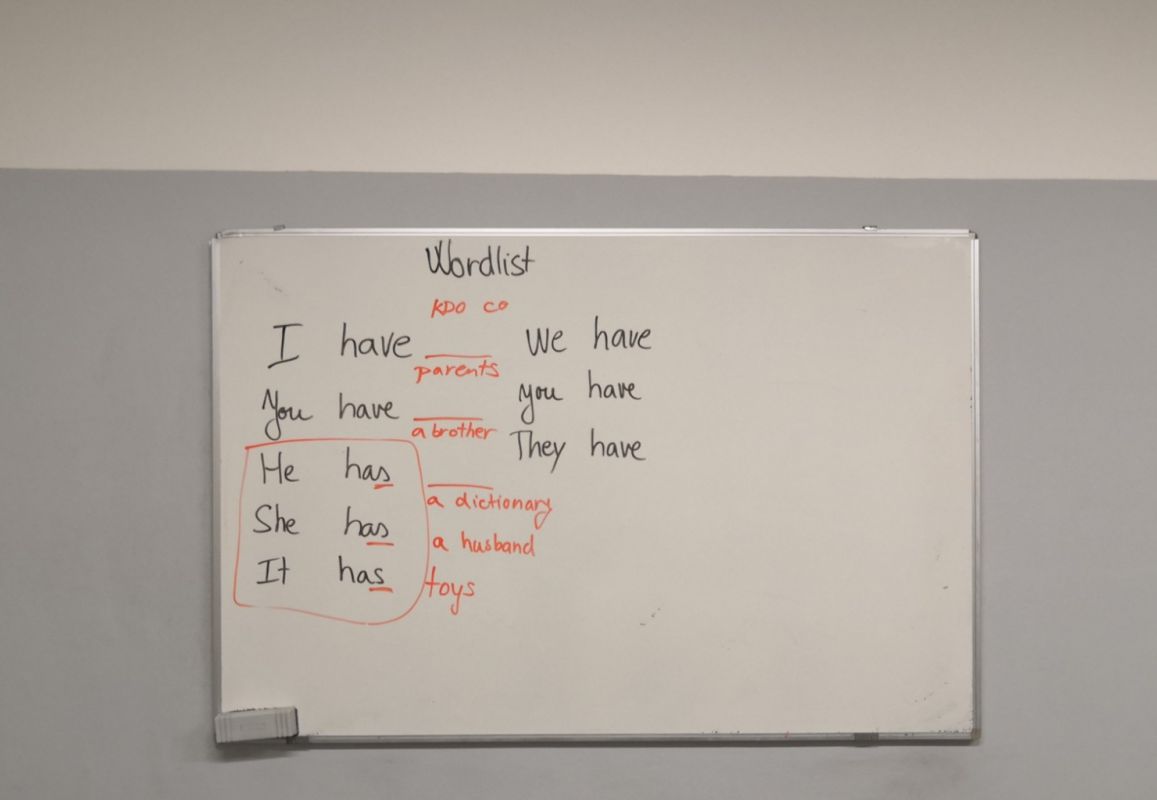 Wordlist
KDO co
I have
parents
You have
a brother
He has
a dictionary
She has
a husband
It has
toys
We have
you have
They have